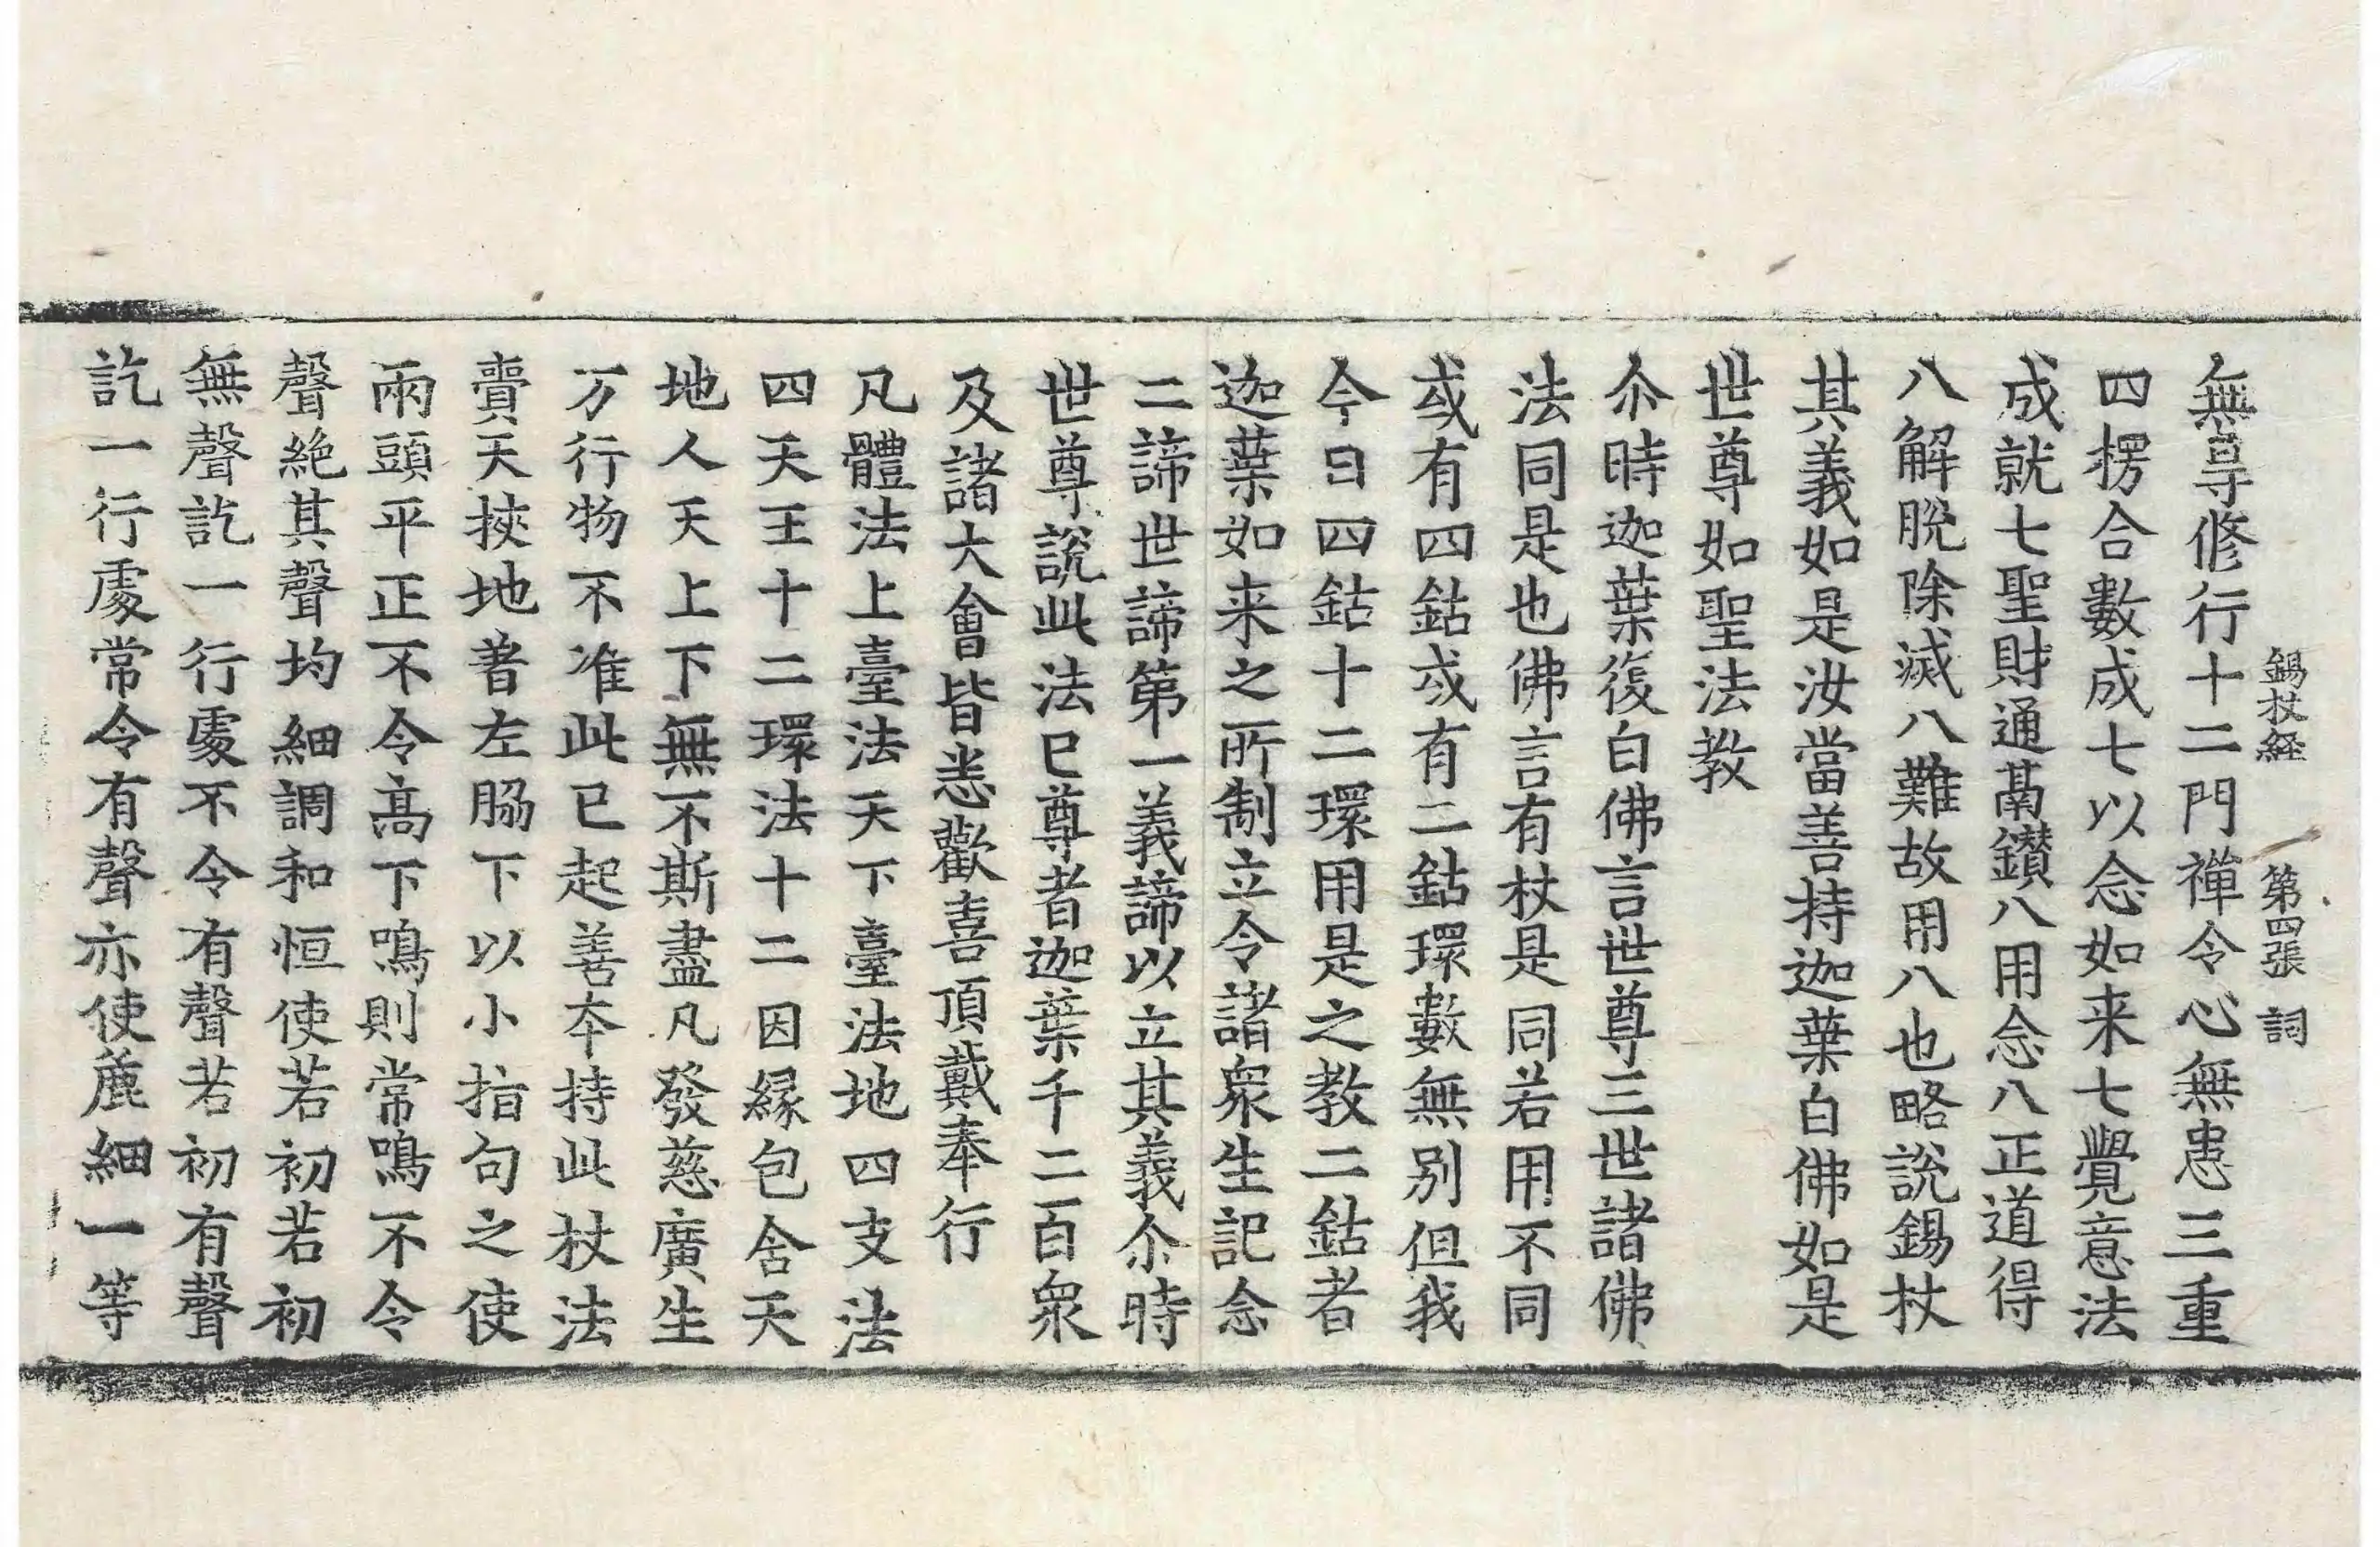 錫杖経 第四張 詞
無㝵修行十二門禪令心無患三重
四楞合數成七以念如来七覺意法
成就七聖財通鬲鑚八用念八正道得
八解脫除滅八難故用八也略說錫杖
其義如是汝當善持迦葉白佛如是
世尊如聖法教
尒時迦葉復白佛言世尊三世諸佛
法同是也佛言有杖是同若用不同
或有四鈷或有二鈷環數無別但我
今日四鈷十二環用是之教二鈷者
迦葉如来之所制立令諸衆生記念
二諦世諦第一義諦以立其義尒時
世尊說此法已尊者迦葉千二百衆
及諸大會皆悉歡喜頂戴奉行
凡體法上臺法天下臺法地四支法
四天王十二環法十二因縁包含天
地人天上下無不斯盡凡發慈廣生
万行物不准此已起善夲持此杖法
賷天挾地著左脇下以小指句之使
兩頭平正不令髙下鳴則常鳴不令
聲絶其聲均細調和恒使若初若初
無聲訖一行處不令有聲若初有聲
訖一行處常令有聲亦使麁細一等